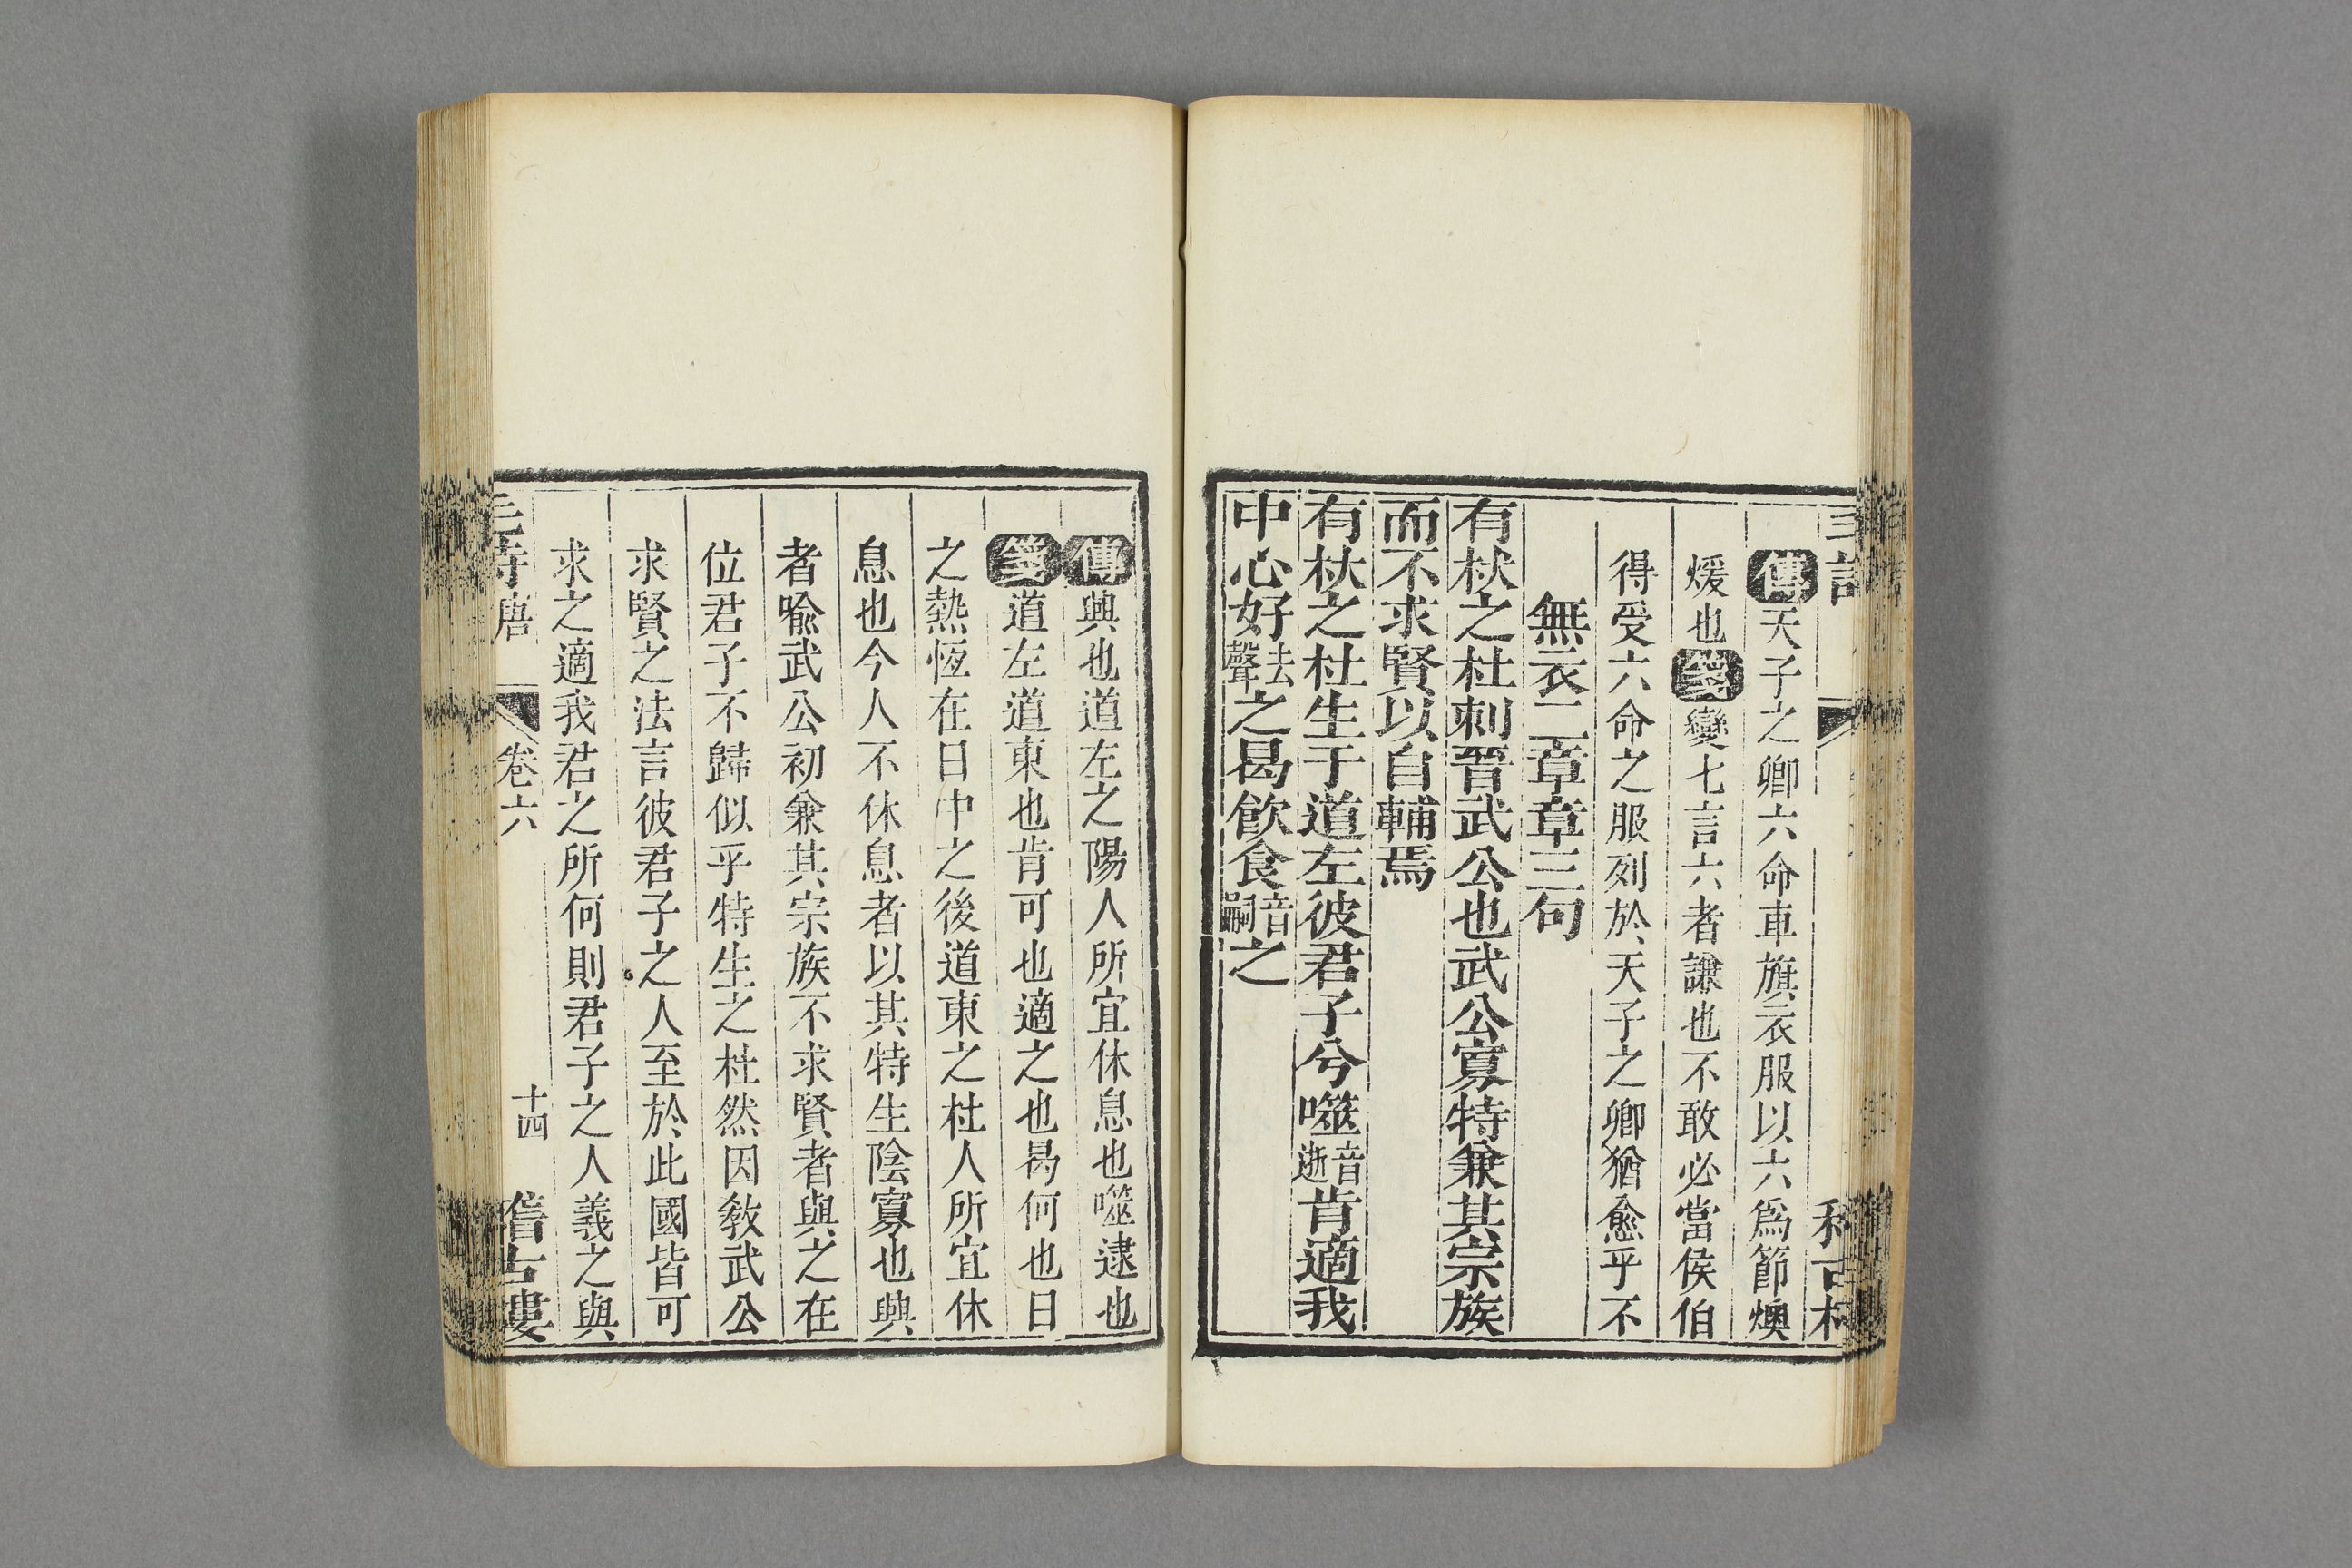 傳天子之卿六命車旗衣服以六爲節燠
煖也箋變七言六者謙也不敢必當侯伯
得受六命之服列於天子之卿猶愈乎不
無衣二章章三句
有杕之杜刺晉武公也武公寡特兼其宗族
而不求賢以自輔焉
有杕之杜生于道左彼君子兮噬音逝肯適我
中心好去聲之曷飲食音嗣之
傳興也道左之陽人所宜休息也噬逮也
箋道左道東也肯可也適之也曷何也日
之熱恆在日中之後道東之杜人所宜休
息也今人不休息者以其特生陰寡也興
者喻武公初兼其宗族不求賢者與之在
位君子不歸似乎特生之杜然因敎武公
求賢之法言彼君子之人至於此國皆可
求之適我君之所何則君子之人義之與
唐 卷六 十四